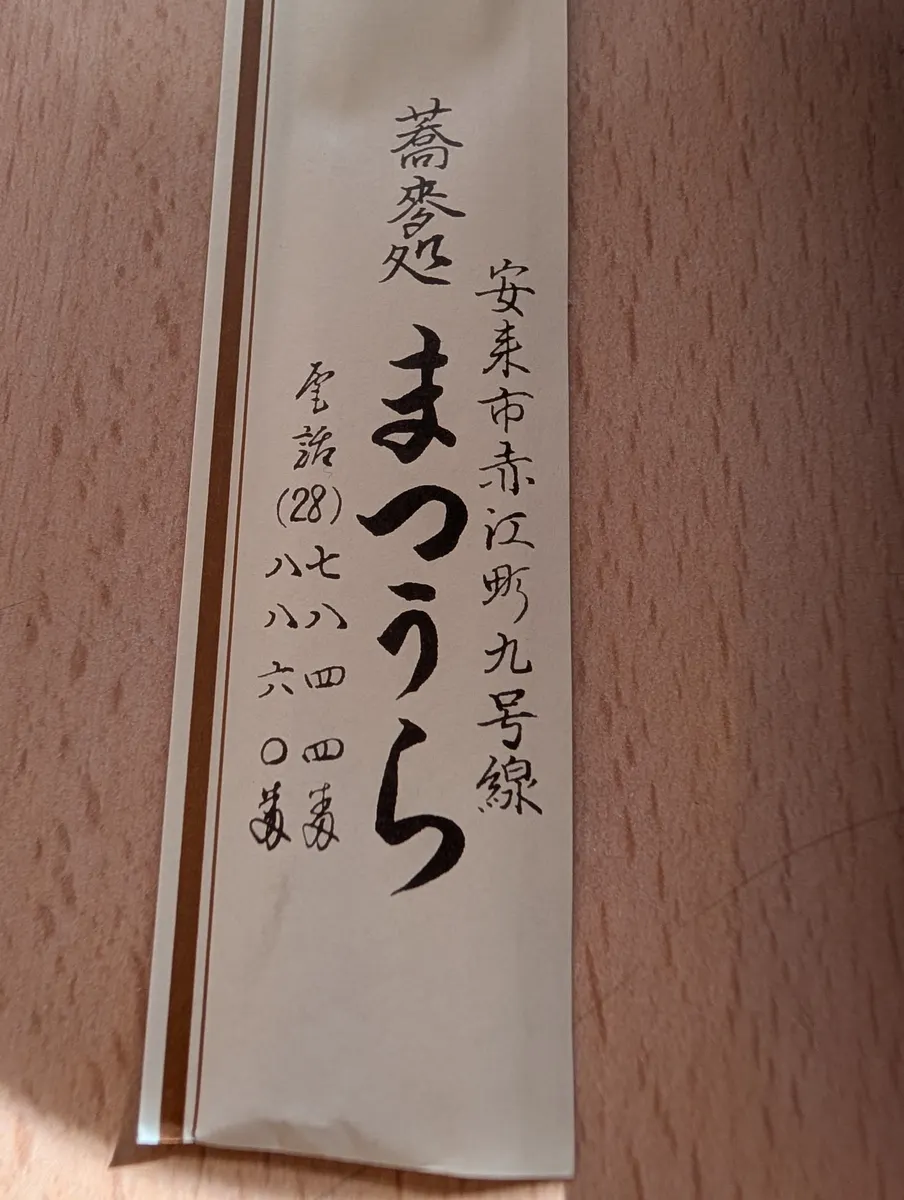 安来市赤江町九号線
蕎麦処 まつうら
電話(28)七八四四番
八八六〇番